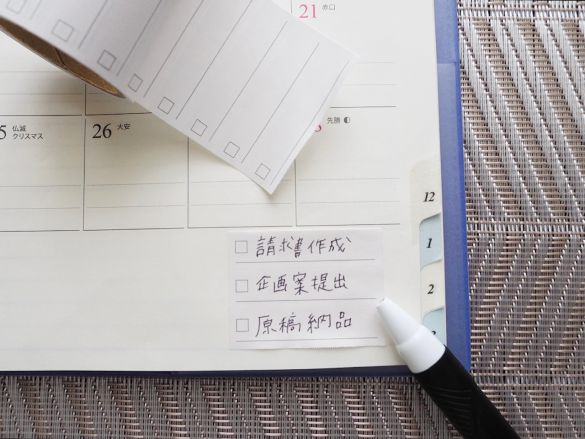 21 赤口
5 仏滅
クリスマス
26 大安
先勝
12
1
2
請求書作成
企画案提出
原稿納品